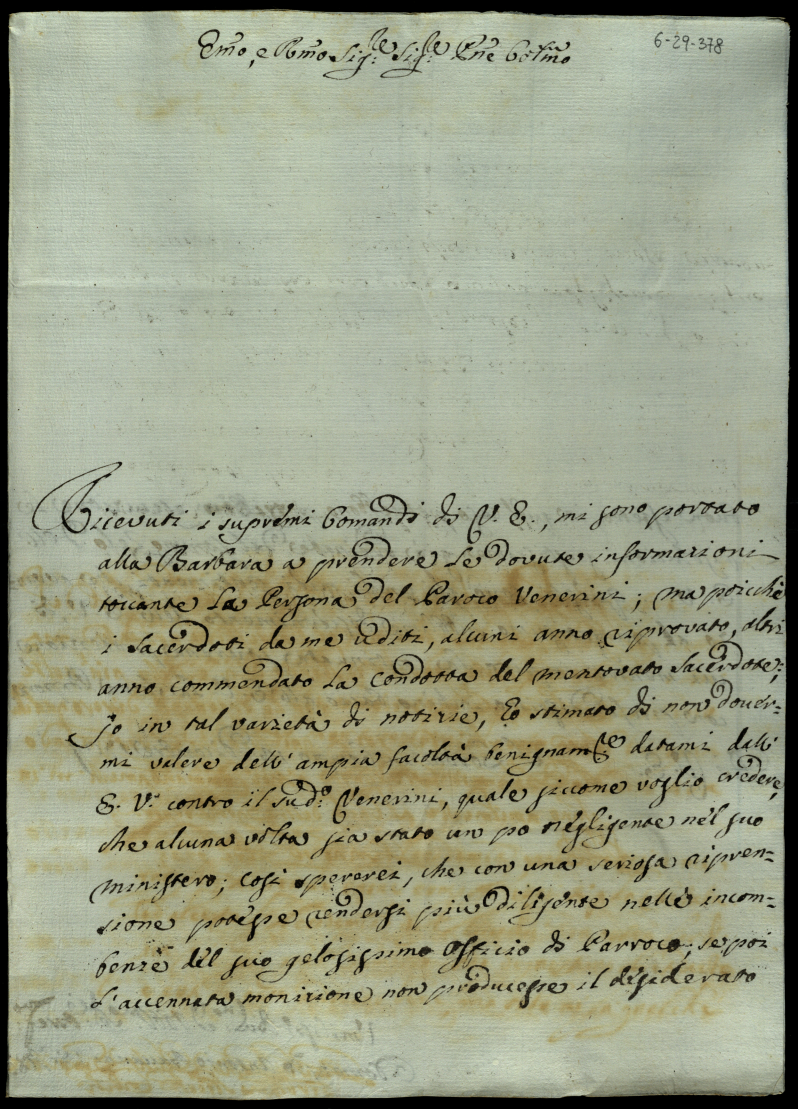 6-29-378
Emo, e Rmo Sig:re Sig:re Pne Colmo
Ricevuti i supremi Comandi di V. E., mi sono portato
alla Barbara a prendere le dovute informazioni
toccante la Persona del Paroco Venerini; ma poicchè
i Sacerdoti da me uditi, alcuni anno riprovato, altri
anno commendato la Condotta del mentovato Sacerdote;
Io in tal varietà di notizie, ho stimato di non dover-
mi valere dell' ampia facoltà benignamte datami dall'
E. V. contro il sudo Venerini, quale siccome voglio credere,
che alcuna volta sia stato un po negligente nel suo
ministero; così spererei, che con una seriosa ripren-
sione potesse rendersi più diligente nelle incom-
benze del suo gelosissimo Officio di Parroco; se poi
l'accennata monizione non producesse il desiderato